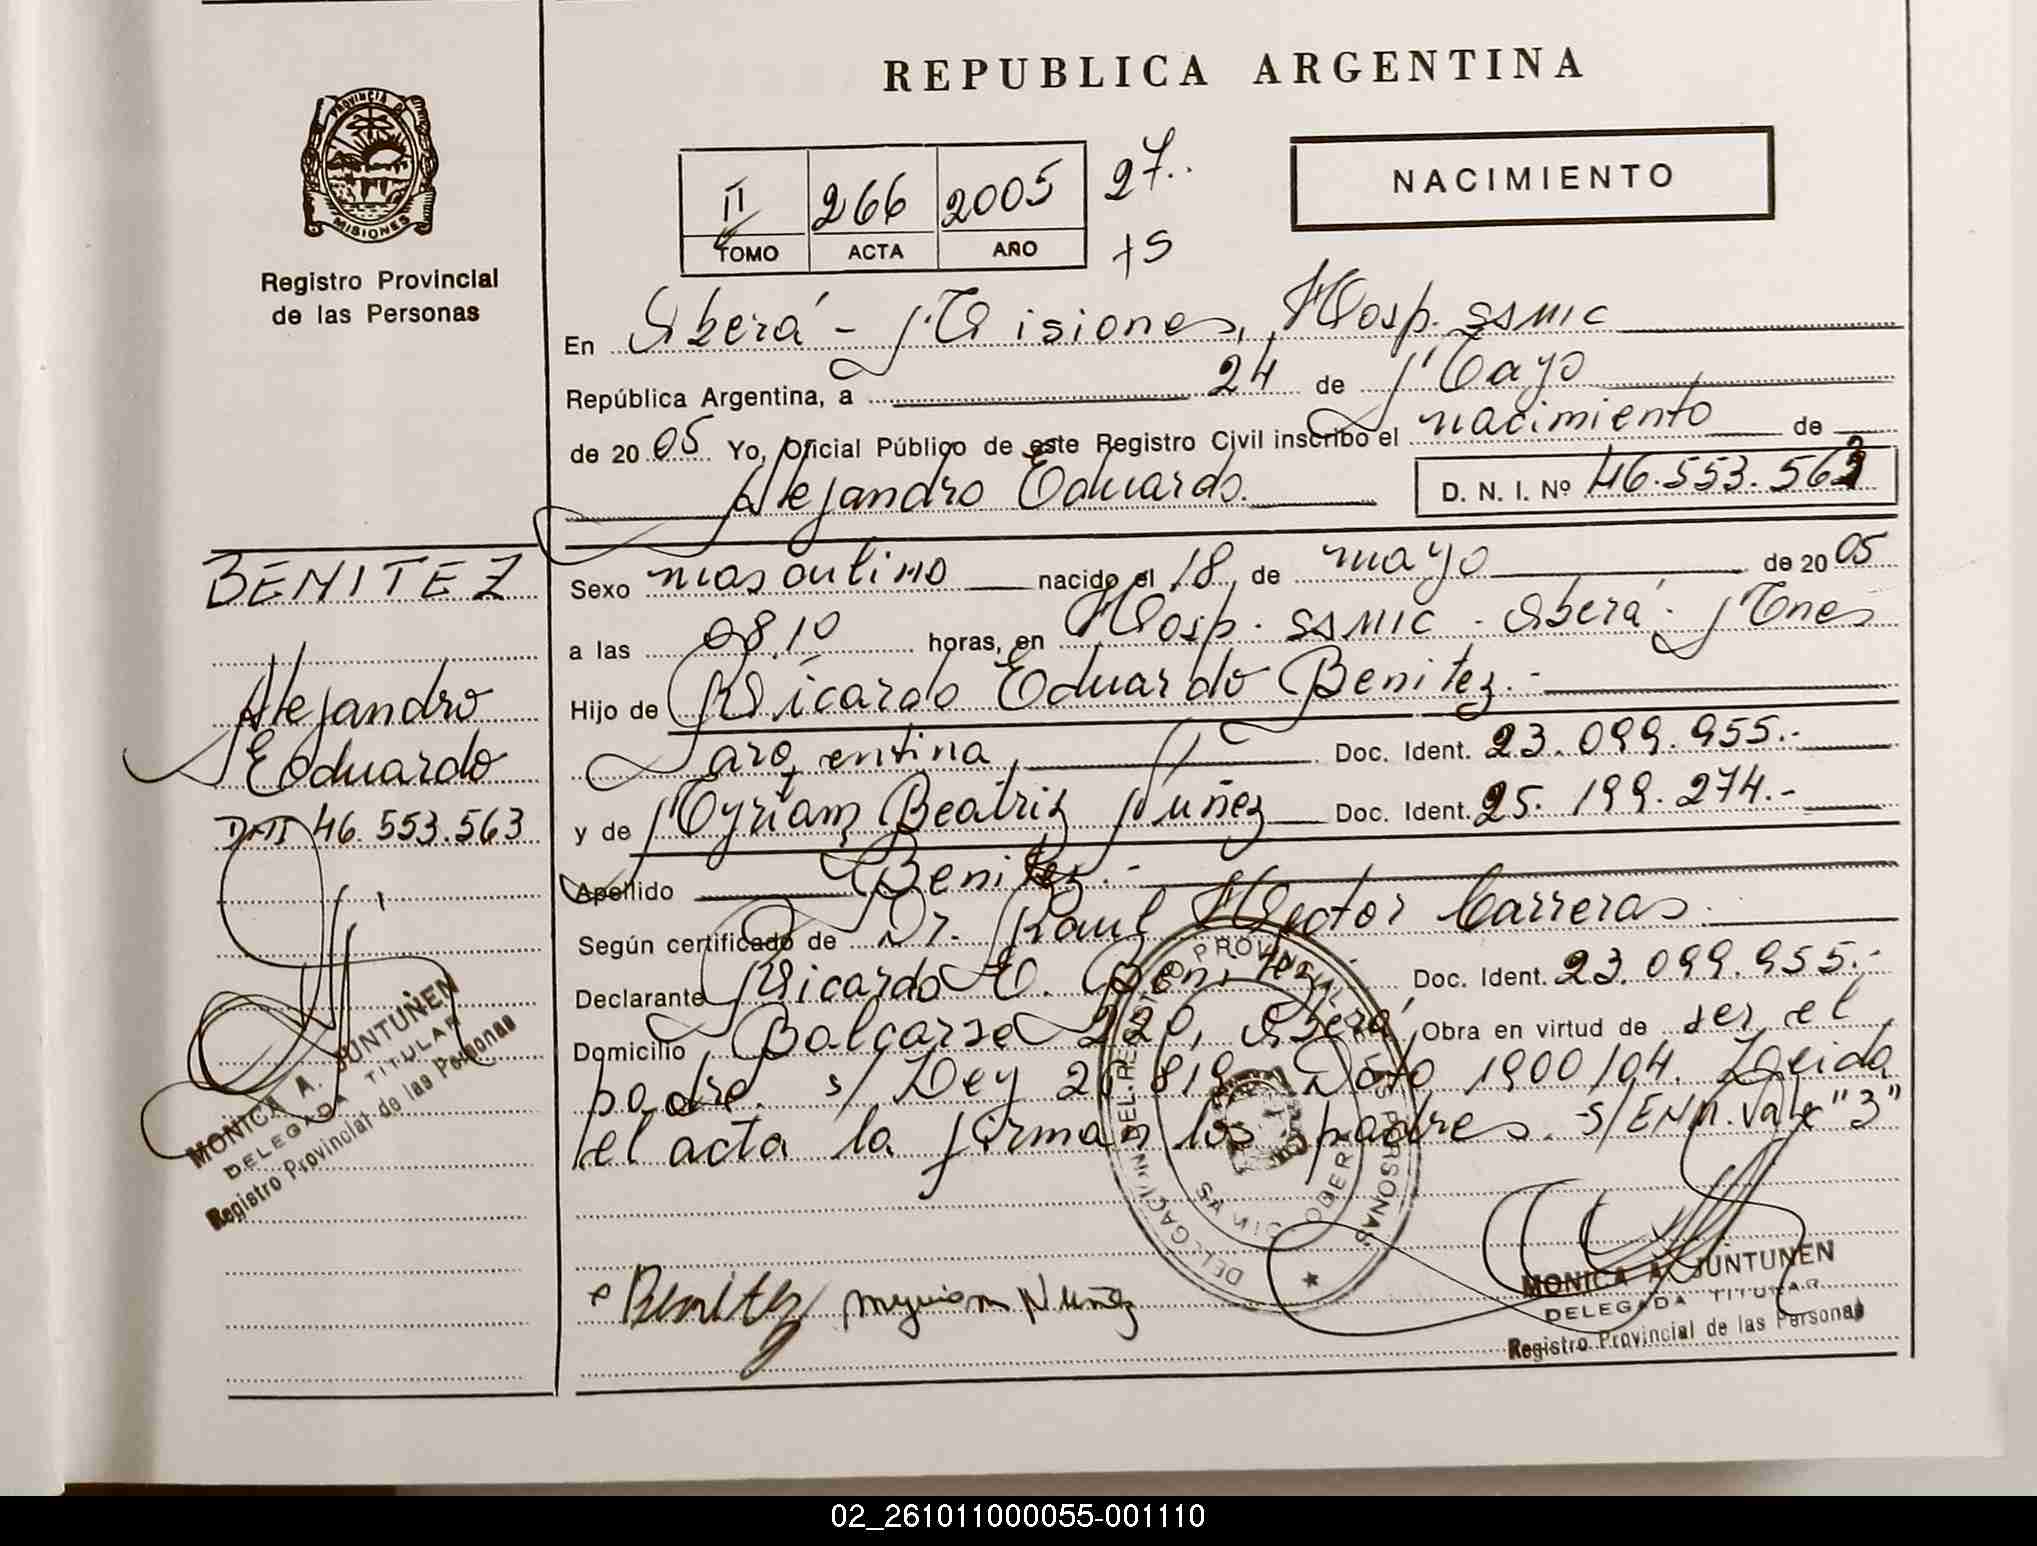 REPUBLICA ARGENTINA
PROVINCIA DE
MISIONES
Registro Provincial
de las Personas
II 266 2005 27..
TOMO ACTA AÑO +5
NACIMIENTO
En Oberá - Misiones, Hosp. SAMIC
República Argentina, a 24 de Mayo
de 2005 Yo, Oficial Público de este Registro Civil inscribo el nacimiento de
Alejandro Eduardo. D. N. I. Nº 46.553.563
BENITEZ
Alejandro
Eduardo
DNI 46.553.563
MONICA A. JUNTUNEN
DELEGADA TITULAR
Registro Provincial de las Personas
Sexo masculino nacido el 18 de mayo de 2005
a las 08,10 horas, en Hosp. SAMIC - Oberá - Mnes
Hijo de Ricardo Eduardo Benitez.-
argentina Doc. Ident. 23.099.955.-
y de Myriam Beatriz Nuñez Doc. Ident. 25.199.274.-
Apellido Benitez.-
Según certificado de Dr. Raul Hector Carreras.
Declarante Ricardo E. Benitez.- Doc. Ident. 23.099.955.-
Domicilio Balcarse 220, Oberá Obra en virtud de ser el
padre. s/ Ley 26.819 Dto 1900/04. Leida
el acta la firman los padres. S/ENM. Vale "3"
DELEGACION DEL REGISTRO PROVINCIAL DE LAS PERSONAS
OBERA MISIONES
Benitez Myriam Nuñez
MONICA A. JUNTUNEN
DELEGADA TITULAR
Registro Provincial de las Personas
02_261011000055-001110